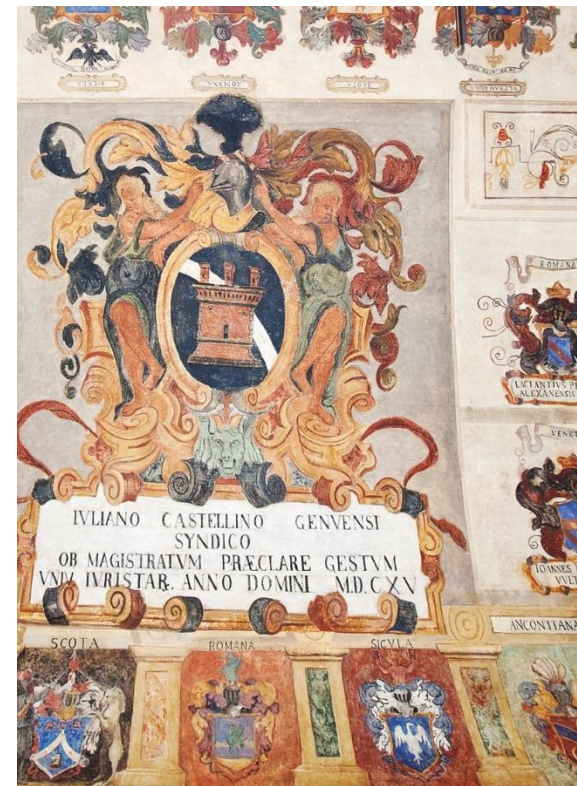 SICVLA
ROMANA
SCOTA
VLTRAMARINA
ROMANA
LACTANTIVS
ALEXANENSIS
VENET
IOANNES
VVLT
IVLIANO CASTELLINO GENVENSI
SYNDICO
OB MAGISTRATVM PRÆCLARE GESTVM
VNIV. IVRISTAR. ANNO DOMINI M.D.CXV
ANCONITANA
SCOTA
ROMANA
SICVLA